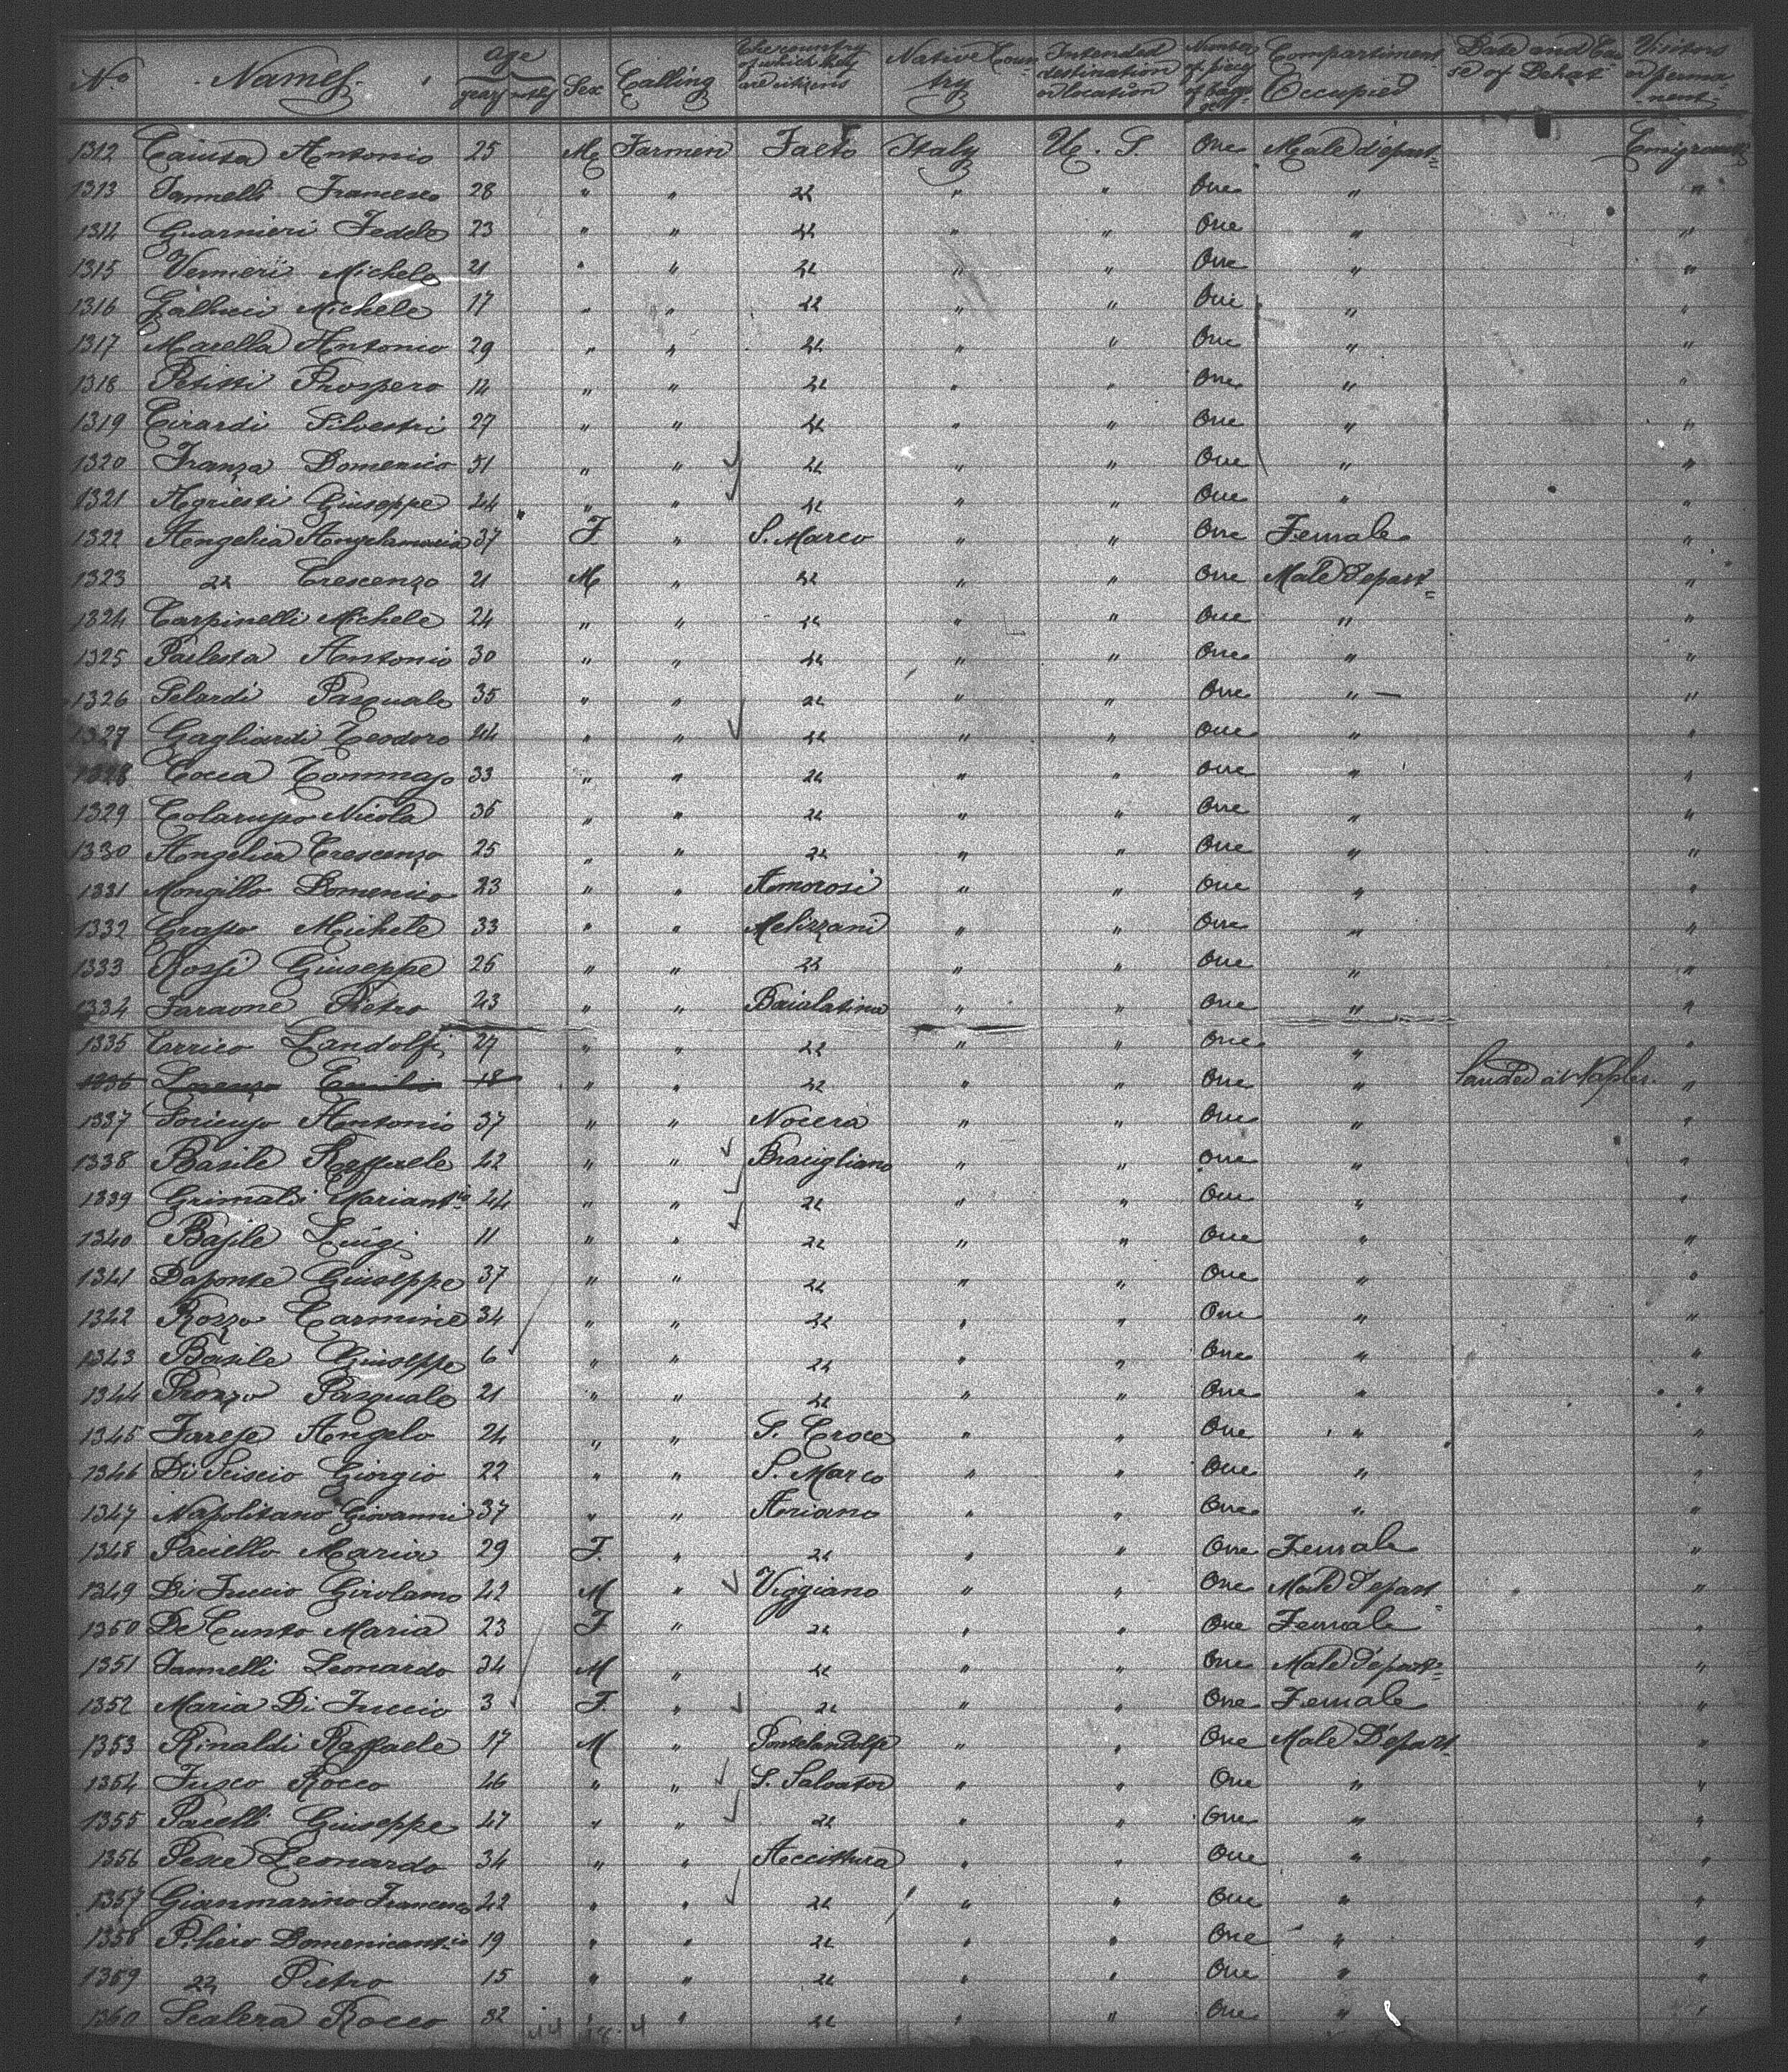 No Names. Age years mths Sex Calling The country of which they are citizens Native Coun try Intended destination or location Number of pieces of bagg Compartiment Occupied Date and Cau se of Dehat Visitors or perma- nent
1312 Caiusa Antonio 25 M. Farmen Faeto Italy U. S. One Male depart= Emigrant
1313 Iannelli Francesco 28 " " " " " One " "
1314 Guarnieri Fedele 23 " " " " " One " "
1315 Vernieri Michele 21 " " " " " One " "
1316 Gallucci Michele 17 " " " " " One " "
1317 Marella Antonio 29 " " " " " One " "
1318 Petitti Prospero 12 " " " " " One " "
1319 Cirardi Silvestri 27 " " " " " One " "
1320 Franza Domenico 51 " " " " " One " "
1321 Agriesti Giuseppe 44 " " " " " One " "
1322 Angelica Angelamaria 37 F. " S. Marco " " One Female "
1323 " Crescenzo 21 M " " " " One Male Depart= "
1324 Carpinelli Michele 24 " " " " " One " "
1325 Paslesta Antonio 30 " " " " " One " "
1326 Pilardi Pasquale 35 " " " " " One " "
1327 Gagliardi Teodoro 44 " " " " " One " "
1328 Cocca Tommaso 33 " " " " " One " "
1329 Colarusso Nicola 36 " " " " " One " "
1330 Angelica Crescenzo 25 " " " " " One " "
1331 Mongillo Domenico 23 " " Amorosi " " One " "
1332 Grasso Michele 33 " " Melizzani " " One " "
1333 Rossi Giuseppe 26 " " " " " One " "
1334 Faraone Pietro 23 " " Baialatina " " One " "
1335 Carrico Landolfi 27 " " " " " One " "
1336 Lorenzo Emilio 18 " " " " " One " Landed at Naples. "
1337 Antonio 37 " " Nocera " " One " "
1338 Basile Raffaele 42 " " Bracigliano " " One " "
1339 Grimaldi Mariantia 44 " " " " " One " "
1340 Basile Luigi 11 " " " " " One " "
1341 Daponte Giuseppe 37 " " " " " One " "
1342 Rozzo Carmine 34 " " " " " One " "
1343 Basile Giuseppe 6 " " " " " One " "
1344 Pronzo Pasquale 21 " " " " " One " "
1345 Farese Angelo 24 " " S. Croce " " One " "
1346 Di Sciscio Giorgio 22 " " S. Marco " " One " "
1347 Napolitano Giovanni 37 " " Ariano " " One " "
1348 Paciello Maria 29 F. " " " " One Female "
1349 Di Fuccio Girolamo 42 M " Viggiano " " One Male Depart= "
1350 De Cunto Maria 23 F " " " " One Female "
1351 Iannelli Leonardo 34 M " " " " One Male Depart= "
1352 Maria Di Fuccio 3 F. " " " " One Female "
1353 Rinaldi Raffaele 17 M " Pontelandolfo " " One Male Depart "
1354 Fusco Rocco 46 " " S. Salvator " " One " "
1355 Pacelli Giuseppe 47 " " " " " One " "
1356 Pesce Leonardo 34 " " Accittura " " One " "
1357 Gianmarino Francesco 42 " " " " " One " "
1358 Domenicantio 19 " " " " " One " "
1359 " Pietro 15 " " " " " One " "
1360 Scalera Rocco 32 " " " " " One " "